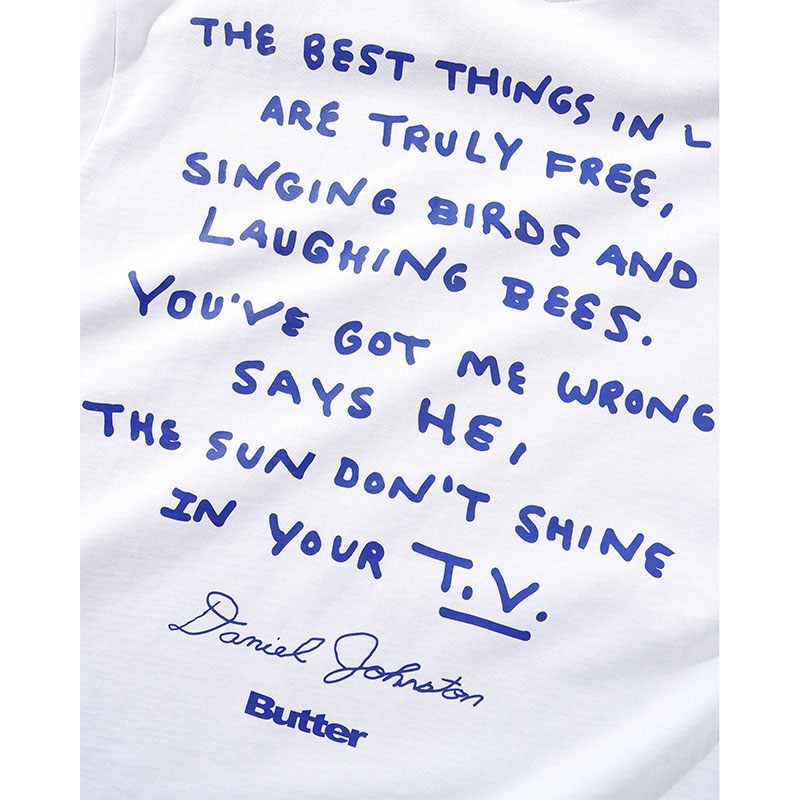 THE BEST THINGS IN L
ARE TRULY FREE,
SINGING BIRDS AND
LAUGHING BEES.
YOU'VE GOT ME WRONG
SAYS HE,
THE SUN DON'T SHINE
IN YOUR T.V.
Daniel Johnston
Butter